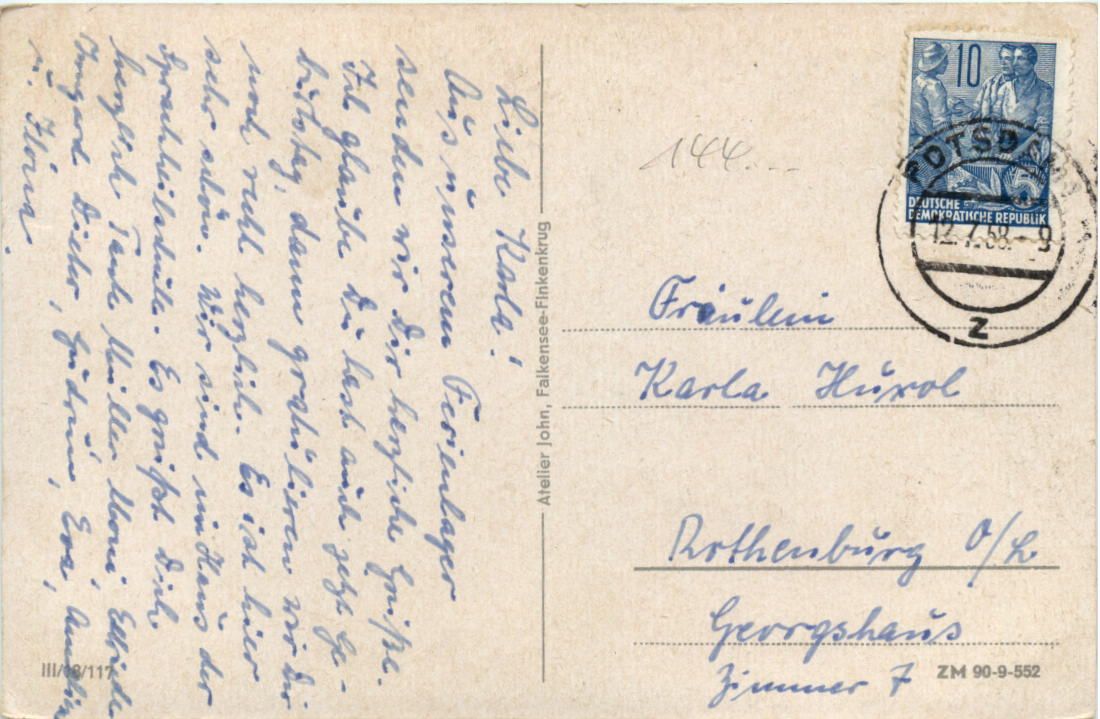 Liebe Karla!
Aus unserem Ferienlager
senden wir Dir herzliche Grüße.
Ich glaube Du hast auch jetzt Ge-
burtstag, dann gratulieren wir Dir
noch recht herzlich. Es ist hier
sehr schön. Wir sind im Haus der
Sprachheilschule. Es grüßt Dich
herzlich Tante Müller Moni Elfriede
Irmgard Dieter, Gudrun, Eva,
u.
Atelier John, Falkensee-Finkenkrug
III/18/117
144
10
DEUTSCHE
DEMOKRATISCHE REPUBLIK
POTSDAM
12.7.58.-9
z
Fräulein
Karla Huxol
Rothenburg O/L
Georgshaus
Zimmer 7
ZM 90-9-552